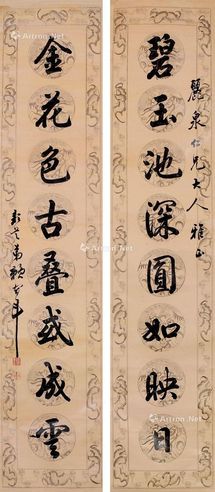 麗泉仁兄大人雅正
碧玉池深圓如映日
金花色古叠或成雲
Artron.Net
Artron.Net